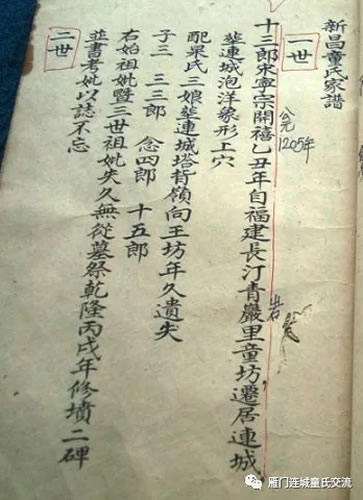 新昌童氏家譜
一世
公元
1205年
十三郎宋寧宗開禧乙丑年自福建長汀青嚴里童坊遷居連城
岩
葬連城泡洋象形上穴
配巫氏三娘葬連城塔背嶺向王坊年久遺失
子三 三三郎 念四郎 十五郎
右始祖妣暨三世祖妣失久無從墓祭乾隆丙戌年修墳二碑
並書考妣以誌不忘
二世
雁门连城童氏交流